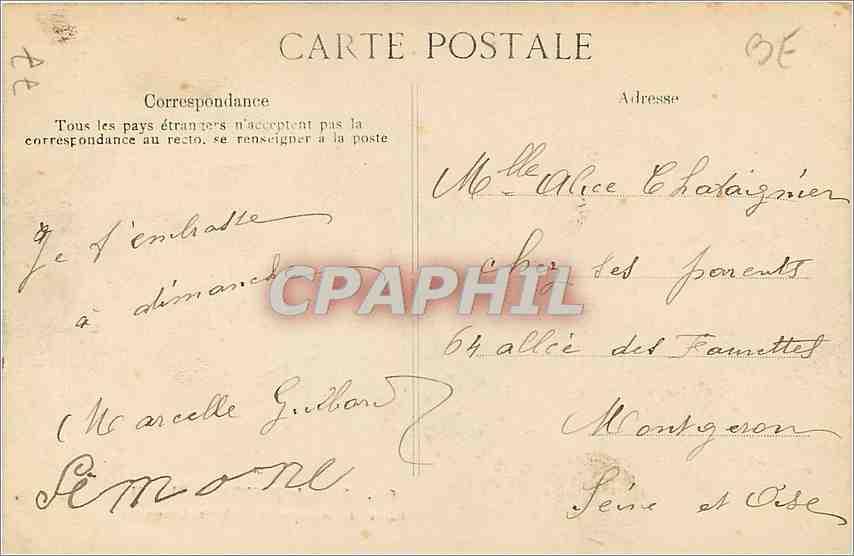 CARTE POSTALE
BE
Correspondance
Tous les pays étrangers n'acceptent pas la
correspondance au recto, se renseigner à la poste
Je t'embrasse
à dimanche
Marcelle
Simone
Adresse
Mlle Alice Chataignier
chez ses parents
64 allée des Fauvettes
Montgeron
Seine et Oise
CPAPHIL